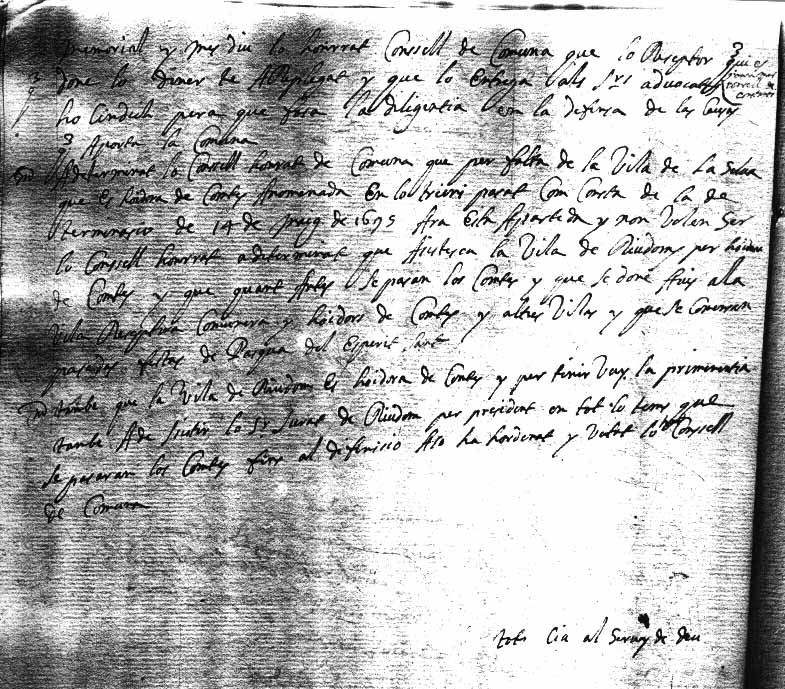 memorial y mes diu lo honrrat Consell de Comuna que lo Receptor
done lo diner te Arreplegat y que lo Entrega als Srs advocats
ho Cindich pera que fasa la diligentia en la defensa de les Causes
que Aporta la Comuna
Adeterminat lo Consell honrat de Comuna que per falta de la Vila de La Selva
que Es hoidora de Contes Anomenada En lo trieni pasat Com Consta de la de
terminasio de 14 de maig de 1695 Ara Esta Apartida y non Volen Ser
lo Consell honrrat adeterminat que Asistesca la Vila de Riudoms per hoidora
de Contes y que quant Antes Se pasan los Contes y que se done Avis alla
Vila Receptora Comunera y hoidors de Contes y altres Viles y que se
pasades festes de Pasqua del Esperit Sant
tambe que la Vila de Riudoms Es hoidora de Contes y per tinir Vuy la
tambe Ade Sistir lo Sr Jurat de Riudoms per president en tot lo tems que
se pasaran los Contes fins al difinisio Aso ha hordenat y Votat lo Consell
de Comuna
tot Cia al Servey de deu